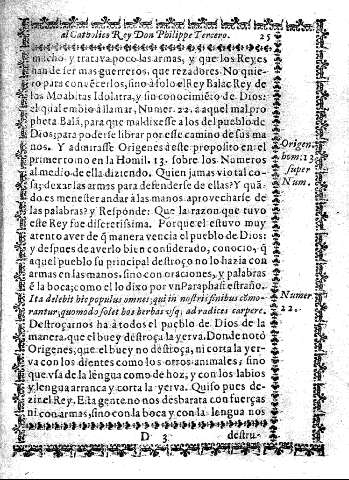 al Catholico Rey Don Philippe Tercero. 25
mucho, y tratava poco las armas, y que los Reyes
han de ser mas guerreros, que rezadores. No quie-
ro para convẽcerlos, sino a solo el Rey Balac Rey de
los Moabitas Idolatra, y sin conocimiẽto de Dios:
el qual embio a llamar, Numer. 22. a aquel mal pro
pheta Balã, para que maldixesse a los del pueblo de
Dios; para poderse librar por este camino de sus ma
nos. Y admirasse Origenes a este proposito en el
primer tomo en la Homil. 13. sobre los Numeros
al medio de ella diziendo. Quien jamas vio tal co-
sa; dexar las armas para defenderse de ellas? Y quã-
do es menester andar a las manos aprovecharse de
las palabras? y Respõnde: Que la razon que tuvo
este Rey fue discretissima. Porque el estuvo muy
atento a ver de q̃ manera vencia el pueblo de Dios:
y despues de averlo bien considerado, conocio, q̃
aquel pueblo su principal destroço no lo hazia con
armas en las manos, sino con oraciones, y palabras
ẽ la boca; como el lo dixo por vn Paraphasi estraño.
Ita delebit hic populus omnes; qui in nostris finibus cõmo-
rantur, quomodo solet bos herbas usq; ad radices carpere.
Destroçarnos ha a todos el pueblo de Dios de la
manera que el buey destroça la yerva. Donde notò
Origenes; que el buey no destroça, ni corta la yer-
va con los dientes como los otros animales; sino
que vsa de la lengua como de hoz, y con los labios
y lengua arranca y corta la yerva. Quiso pues de-
zir el Rey. Esta gente no nos desbarata con fuerças
ni con armas, sino con la boca y con la lengua nos
D 3 destru-
Origen.
hom. 13
super
Num.
Numer.
22.